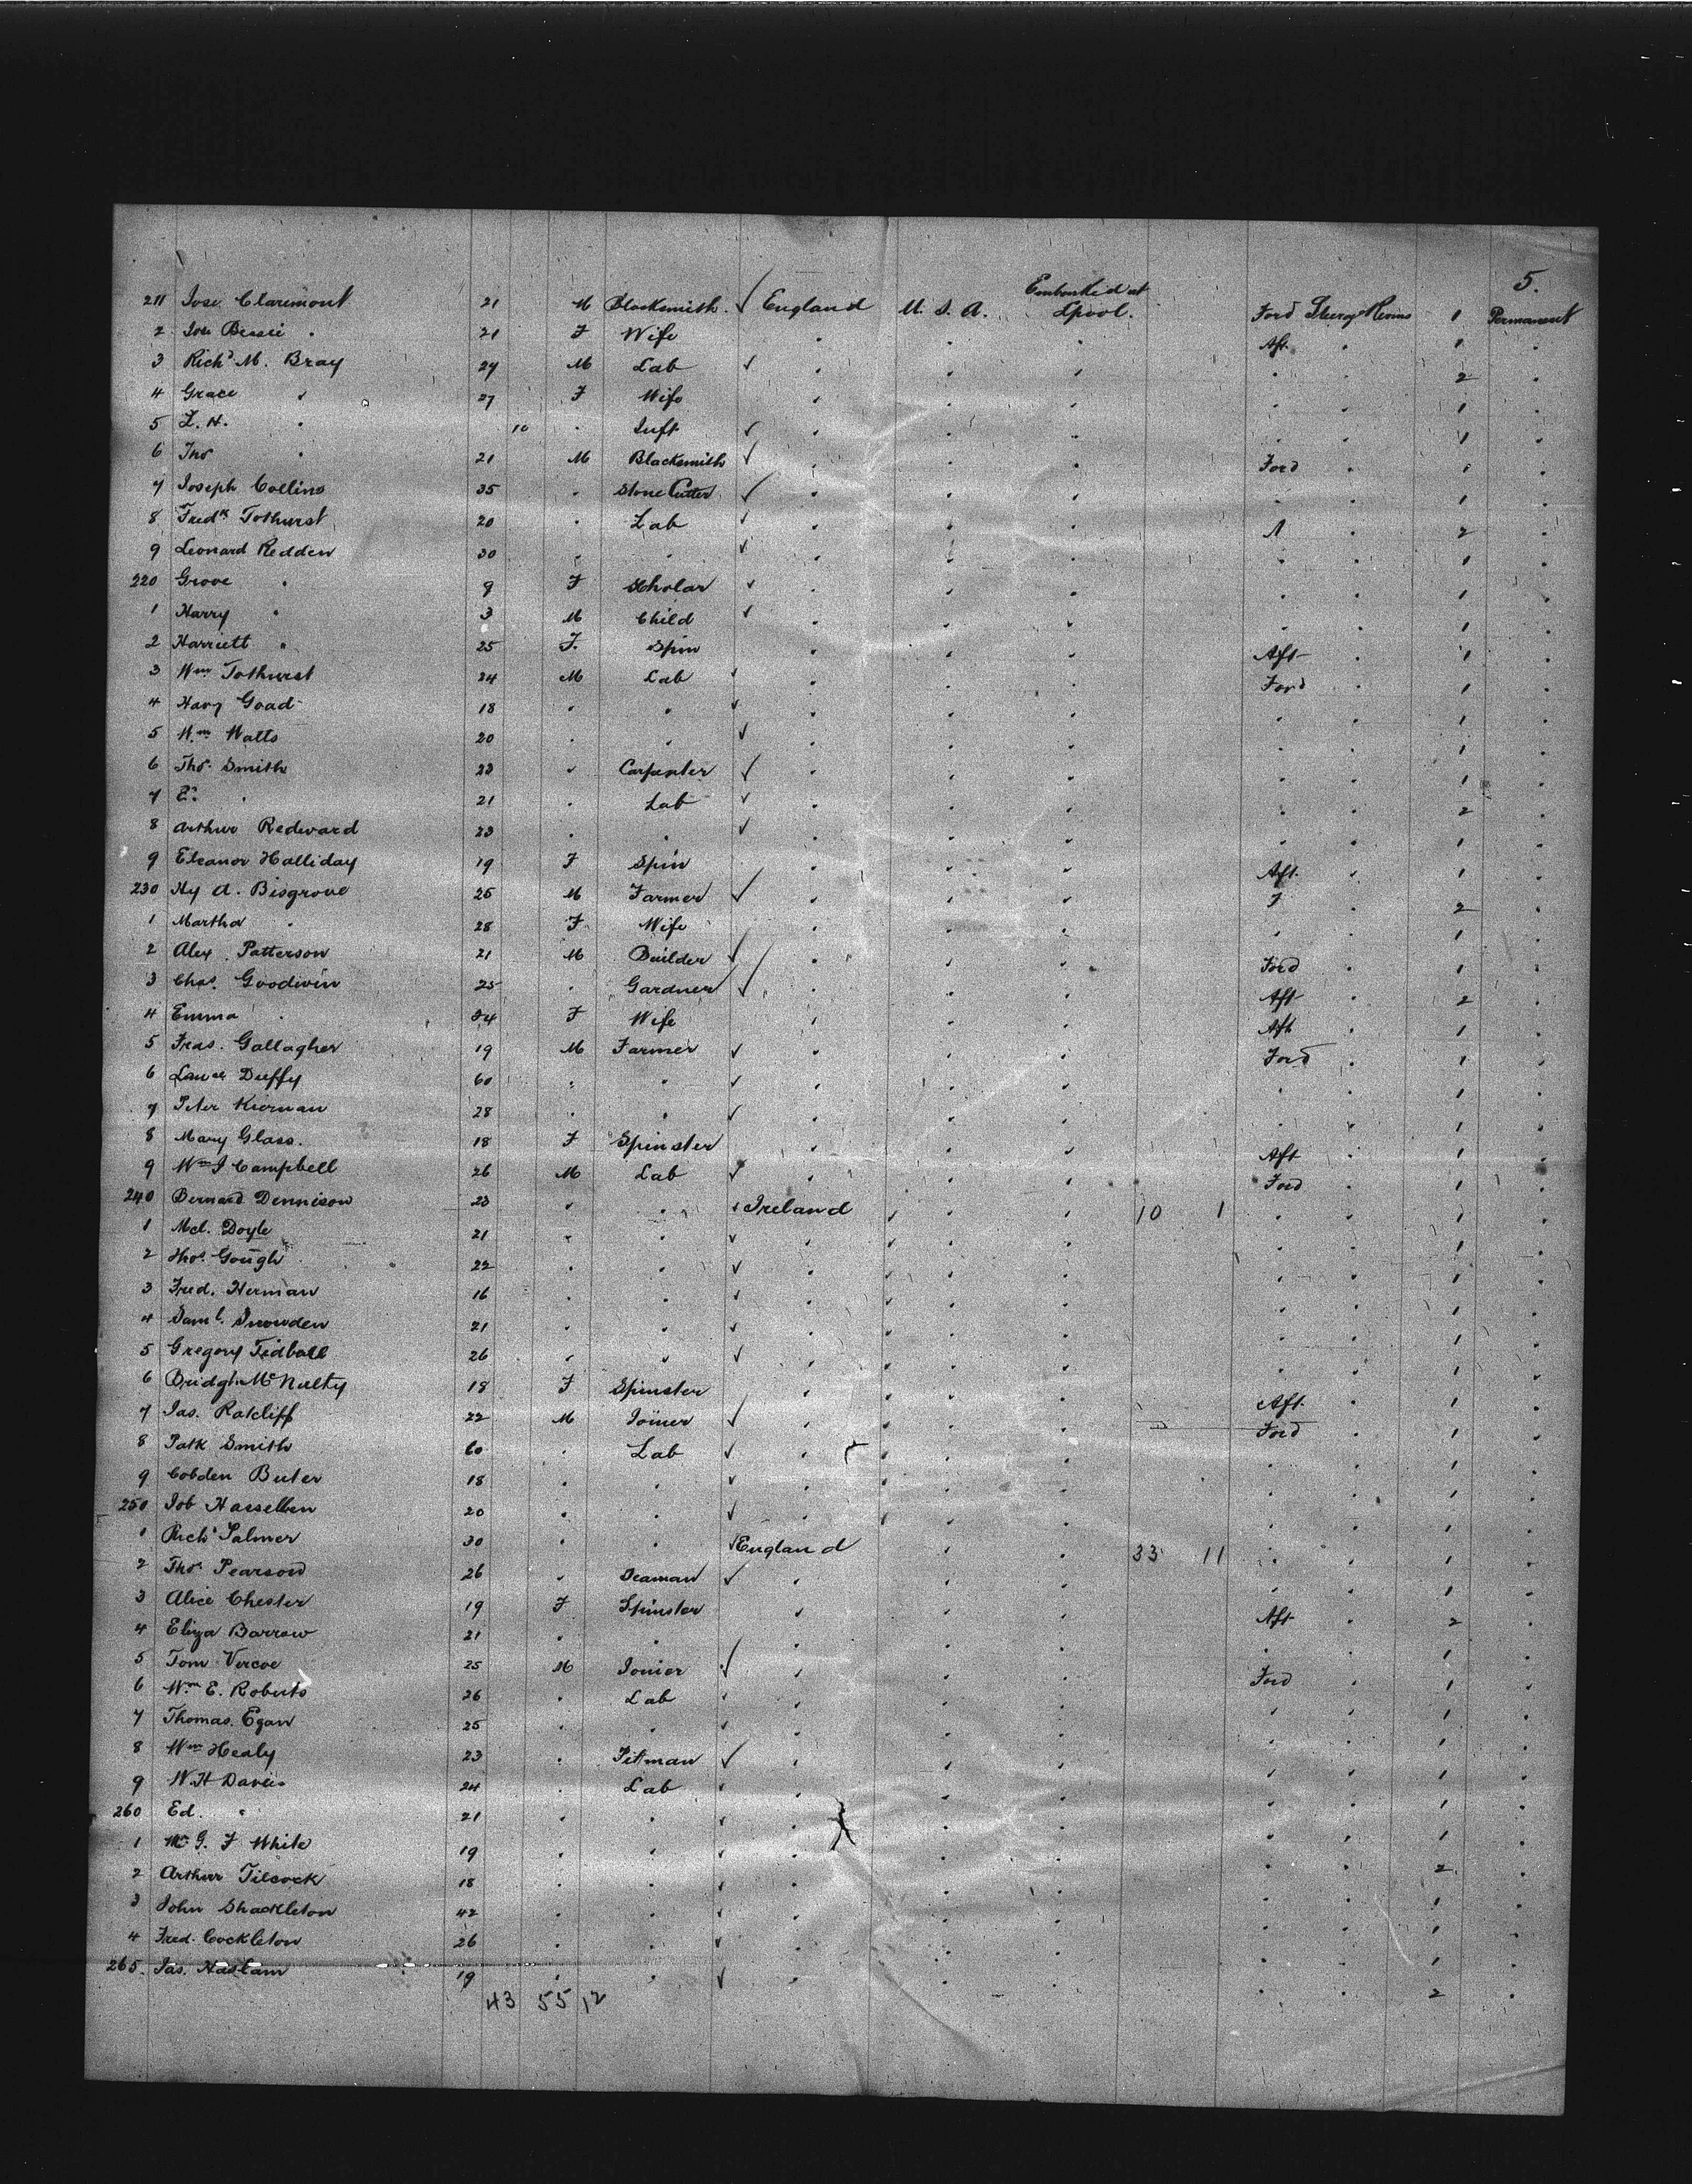 5.
Embarked at
211 Jose. Claremont 21 M Blacksmith. ✓ England U. S. A. Lpool. Ford Steerage Rooms 1 Permanent
2 Bessie " 21 F Wife " " " Aft. " 1 "
3 Richd M. Bray 27 M Lab ✓ " " " " " 2 "
4 Grace " 27 F Wife " " " " " 1 "
5 L. H. " 10 " Inft ✓ " " " " " 1 "
6 Thos " 21 M Blacksmith ✓ " " " Ford " 1 "
7 Joseph Collins 35 " Stone Cutter ✓ " " " " " 1 "
8 Fredk Tothurst 20 " Lab ✓ " " " " 2 "
9 Leonard Redden 30 " " ✓ " " " " " 1 "
220 Grove " 9 F Scholar ✓ " " " " " 1 "
1 Harry " 3 M Child ✓ " " " " " 1 "
2 Harriett " 25 F. Spin " " " Aft " 1 "
3 Wm Tothurst 24 M Lab ✓ " " " Ford " 1 "
4 Hary Goad 18 " " ✓ " " " " " 1 "
5 Wm Watts 20 " " ✓ " " " " " 1 "
6 Thos. Smith 23 " Carpenter ✓ " " " " " 1 "
7 " 21 " Lab ✓ " " " " " 2 "
8 Arthur Redward 23 " " ✓ " " " " " 1 "
9 Eleanor Halliday 19 F Spin " " " Aft. " 1 "
230 Hy A. Bisgrove 25 M Farmer ✓ " " " F " 2 "
1 Martha " 28 F Wife " " " " " 1 "
2 Alex. Patterson 21 M Builder ✓ " " " Ford " 1 "
3 Chas. Goodwin 25 " Gardner ✓ " " " Aft " 2 "
4 Emma " 24 F Wife " " " Aft " 1 "
5 Fras. Gallagher 19 M Farmer ✓ " " " Ford " 1 "
6 Duffy 60 " " ✓ " " " " " 1 "
7 Peter Kiernan 28 " " ✓ " " " " " 1 "
8 Mary Glass. 18 F Spinster " " " Aft " 1 "
9 Wm J Campbell 26 M Lab ✓ " " " Ford " 1 "
240 Bernard Dennison 23 " " ✓ Ireland " " 10 1 " " 1 "
1 Mcl. Doyle 21 " " ✓ " " " " " 1 "
2 Thos. Gough 22 " " ✓ " " " " " 1 "
3 Fred. Herman 16 " " ✓ " " " " " 1 "
4 Saml. Snowden 21 " " ✓ " " " " " 1 "
5 Gregory Tidball 26 " " ✓ " " " " " 1 "
6 Bridgt McNulty 18 F Spinster " " " Aft. " 1 "
7 Jas. Ratcliff 22 M Joiner ✓ " " " Ford " 1 "
8 Patk Smith 60 " Lab ✓ " " " " " 1 "
9 Cobden Buter 18 " " ✓ " " " " " 1 "
250 Job Hasselben 20 " " ✓ " " " " " 1 "
1 Richd Palmer 30 " " ✓ England " " 33 11 " " 1 "
2 Thos. Pearson 26 " Seaman ✓ " " " " " 1 "
3 Alice Chester 19 F Spinster " " " Aft " 2 "
4 Eliza Barrow 21 " " " " " " " 1 "
5 Tom Vercoe 25 M Jonier ✓ " " " Ford " 1 "
6 Wm E. Roberts 26 " Lab ✓ " " " " " 1 "
7 Thomas. Egan 25 " " ✓ " " " " " 1 "
8 Wm Healy 23 " Pitman ✓ " " " " " 1 "
9 W. H Davis 24 " Lab ✓ " " " " " 1 "
260 Ed. " 21 " " ✓ " " " " " 1 "
1 G. F White 19 " " ✓ " " " " " 2 "
2 Arthur Tilcock 18 " " ✓ " " " " " 1 "
3 John Shackleton 42 " " ✓ " " " " " 1 "
4 Fred. Cockleton 26 " " ✓ " " " " " 1 "
265. Jas. Haslam 19 " " ✓ " " " " " 2 "
43 55 12